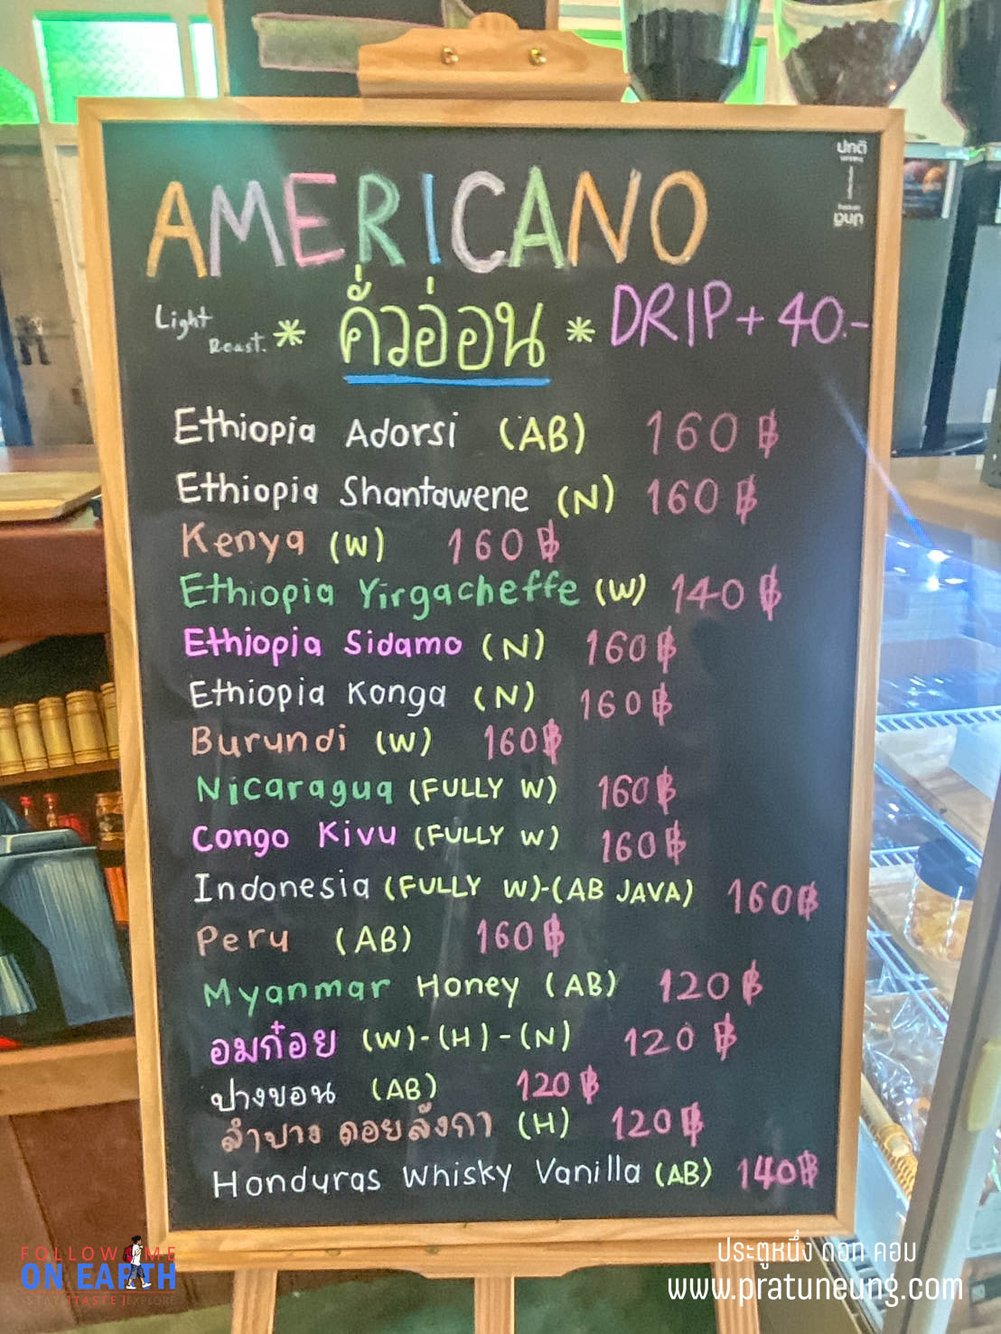 AMERICANO
Light Roast. * คั่วอ่อน * DRIP + 40.-
Ethiopia Adorsi (AB) 160 ฿
Ethiopia Shantawene (N) 160 ฿
Kenya (W) 160 ฿
Ethiopia Yirgacheffe (W) 140 ฿
Ethiopia Sidamo (N) 160 ฿
Ethiopia Konga (N) 160 ฿
Burundi (W) 160 ฿
Nicaragua (FULLY W) 160 ฿
Congo Kivu (FULLY W) 160 ฿
Indonesia (FULLY W)-(AB JAVA) 160 ฿
Peru (AB) 160 ฿
Myanmar Honey (AB) 120 ฿
อมก๋อย (W)-(H)-(N) 120 ฿
ปางขอน (AB) 120 ฿
ลำปาง ดอยลังกา (H) 120 ฿
Honduras Whisky Vanilla (AB) 140 ฿
ปกติ
FOLLOW ME
ON EARTH
TASTE | EXPLORE
ประตูหนึ่ง ดอท คอม
www.pratuneung.com